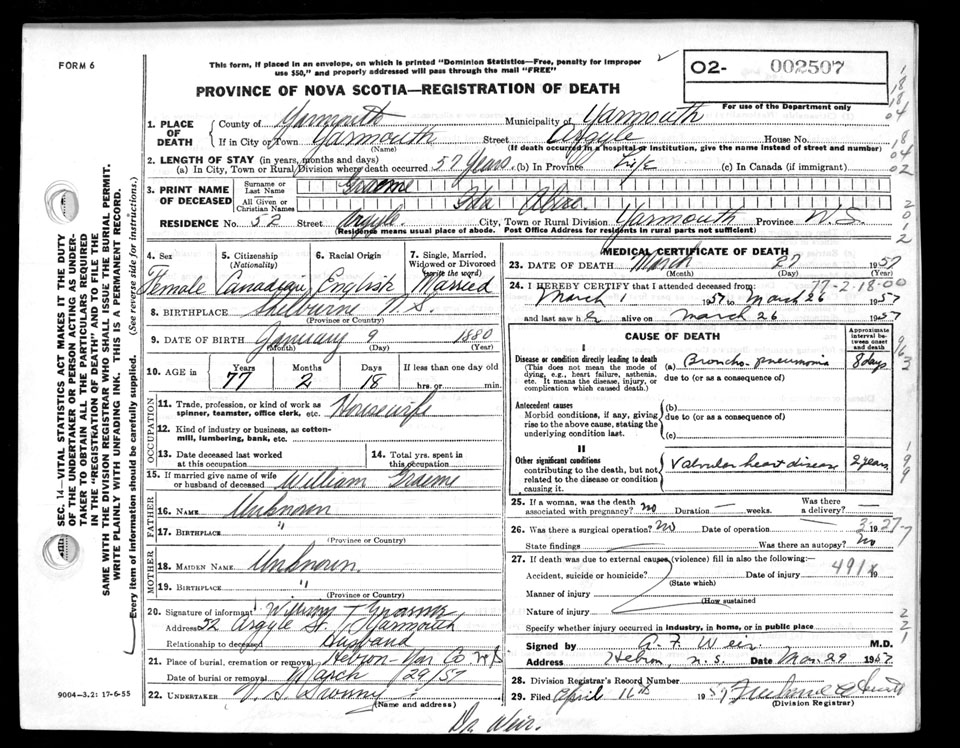 FORM 6
This form, if placed in an envelope, on which is printed "Dominion Statistics—Free, penalty for improper
use $50," and properly addressed will pass through the mail "FREE"
O2- 002507
For use of the Department only
PROVINCE OF NOVA SCOTIA—REGISTRATION OF DEATH
1. PLACE OF DEATH
County of Yarmouth Municipality of Yarmouth
If in City or Town Yarmouth Street Argyle House No.
(Name) (If death occurred in a hospital or institution, give the name instead of street and number)
2. LENGTH OF STAY (in years, months and days)
(a) In City, Town or Rural Division where death occurred 57 Years (b) In Province Life (c) In Canada (if immigrant)
3. PRINT NAME OF DECEASED
Surname or Last Name Graeme
All Given or Christian Names Ida
RESIDENCE No. 52 Street Argyle City, Town or Rural Division Yarmouth Province N.S.
(Residence means usual place of abode. Post Office Address for residents in rural parts not sufficient)
4. Sex
Female
5. Citizenship
(Nationality)
Canadian
6. Racial Origin
English
7. Single, Married,
Widowed or Divorced
(write the word)
Married
8. BIRTHPLACE Shelburne N.S.
(Province or Country)
9. DATE OF BIRTH January 9 1880
(Month) (Day) (Year)
10. AGE in
Years Months Days If less than one day old
77 2 18 hrs. or min.
OCCUPATION
11. Trade, profession, or kind of work as
spinner, teamster, office clerk, etc. Housewife
12. Kind of industry or business, as cotton-
mill, lumbering, bank, etc.
13. Date deceased last worked
at this occupation
14. Total yrs. spent in
this occupation
15. If married give name of wife
or husband of deceased William Graeme
FATHER
16. NAME Unknown
17. BIRTHPLACE "
(Province or Country)
MOTHER
18. MAIDEN NAME Unknown.
19. BIRTHPLACE "
(Province or Country)
20. Signature of informant
Address 52 Argyle St. Yarmouth
Relationship to deceased Husband
21. Place of burial, cremation or removal Hebron Yar Co N.S
Date of burial or removal March 29/57
22. UNDERTAKER
(Name and address)
Dr. Weir.
MEDICAL CERTIFICATE OF DEATH
23. DATE OF DEATH March 27 1957
(Month) (Day) (Year)
77-2-18-00
24. I HEREBY CERTIFY that I attended deceased from:
March 1 1957 to March 26 1957
and last saw her alive on March 26 1957
CAUSE OF DEATH
Approximate interval between onset and death
I
Disease or condition directly leading to death
(This does not mean the mode of
dying, e.g., heart failure, asthenia,
etc. It means the disease, injury, or
complication which caused death.)
(a) Broncho pneumonia 8 days
due to (or as a consequence of)
Antecedent causes
Morbid conditions, if any, giving
rise to the above cause, stating the
underlying condition last.
(b)
due to (or as a consequence of)
(c)
II
Other significant conditions
contributing to the death, but not
related to the disease or condition
causing it.
Valvular heart disease 2 years
25. If a woman, was the death
associated with pregnancy? No Duration — weeks. Was there
a delivery? —
26. Was there a surgical operation? No Date of operation — 19
3-27-7
State findings Was there an autopsy? No
27. If death was due to external causes (violence) fill in also the following:—
Accident, suicide or homicide? Date of injury 19
491X
(State which)
Manner of injury
(How sustained
Nature of injury
Specify whether injury occurred in industry, in home, or in public place
Signed by A. F. Weir M.D.
Address Hebron, N.S. Date Mar. 29 1957.
28. Division Registrar's Record Number
29. Filed April 16th 1957
(Division Registrar)
SEC. 14—VITAL STATISTICS ACT MAKES IT THE DUTY
OF THE UNDERTAKER OR PERSON ACTING AS UNDER-
TAKER TO OBTAIN ALL THE PARTICULARS REQUIRED
IN THE "REGISTRATION OF DEATH" AND TO FILE THE
SAME WITH THE DIVISION REGISTRAR WHO SHALL ISSUE THE BURIAL PERMIT.
WRITE PLAINLY WITH UNFADING INK. THIS IS A PERMANENT RECORD.
Every item of information should be carefully supplied. (See reverse side for instructions.)
9004-3.2: 17-6-55